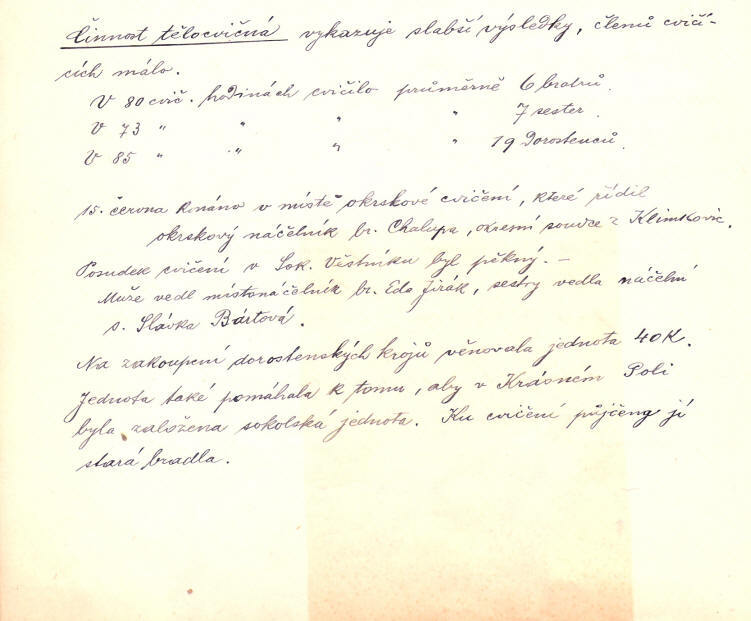 Činnost tělocvičná vykazuje slabší výsledky, členů cvičí-
cích málo.
V 80 cvič. hodinách cvičilo průměrně 6 bratrů.
V 73 " " " " 7 sester.
V 85 " " " " 19 Dorostenců.
15. června konáno v místě okrskové cvičení, které řídil
okrskový náčelník br. Chalupa, okresní soudce z Klimkovic.
Posudek cvičení v Sok. Věstníku byl pěkný. —
Muže vedl místonáčelník br. Eda Jirák, sestry vedla náčelní
s. Slávka Bártová.
Na zakoupení dorostenských krojů věnovala jednota 40 K.
Jednota také pomáhala k tomu, aby v Krásném Poli
byla založena sokolská jednota. Ku cvičení půjčeny jí
stará bradla.